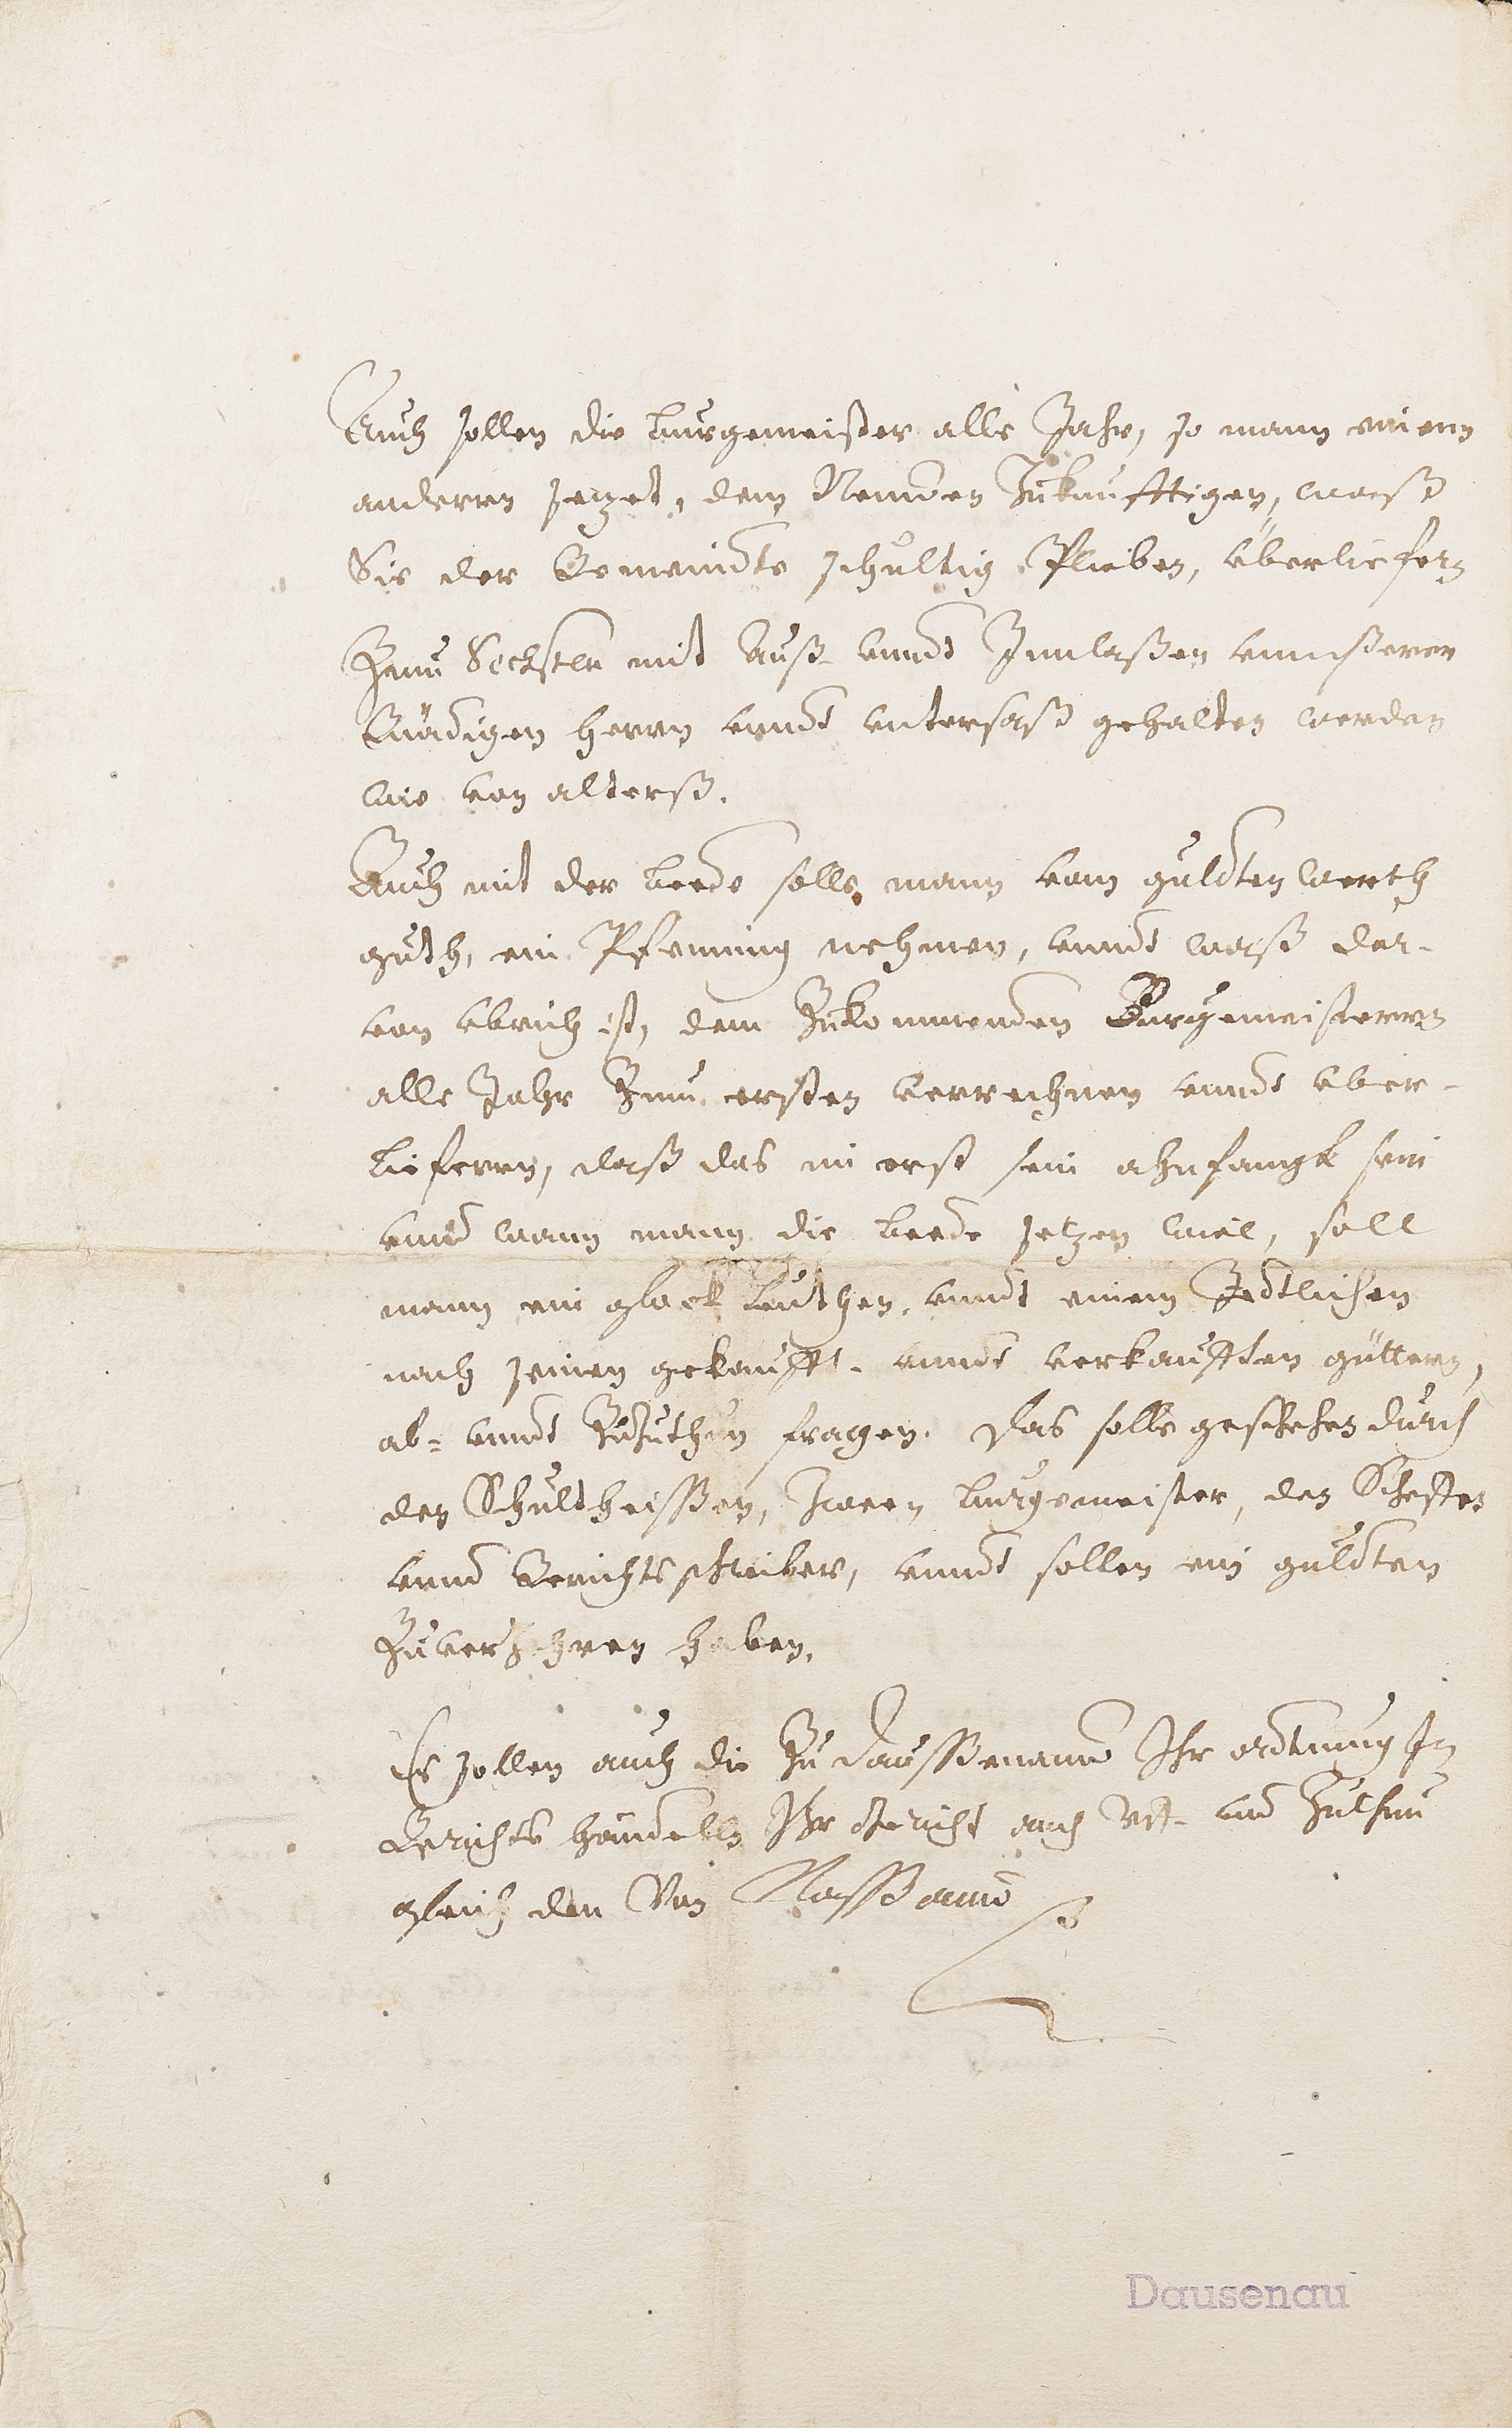 Auch sollen die burgemeister alle Jahr, so mann einenn
anderen setzet, dem Neuwen Zukunfftigen, waß
Sie der Gemeindte schultig Plieben, überliefern
Zum Sechsten mit Auß- unndt Innlaßen vnnßeren
Gnädigen herrn vnndt vntersaß gehalten werden
wie von alterß.
Auch mit der beede solle mann vom guldten werth
guth, ein Pfenning nehmen, vnndt waß dar-
von vbrich ist, dem Zukommenden Burgemeisterrn
alle Jahr Zum ersten verrechnen vnndt vber-
lieferrn, daß das im erst sein ahnfangk sein
vnnd wann mann die beede setzen wiel, soll
mann ein glock leuthen, vnndt einem Jedtlichen
nach seinen gekaufft- vnndt verkaufften güttern,
ab- vnndt Zuzuthun fragen. Das solle geschehen durch
den Schultheissen, Zween burgemeister, den Scheffen
vnnd Gerichtsschreiber, vnndt sollen ein guldten
Zuverzehren haben.
Es sollen auch die Zu Daussenauw Ihr ordtnung In
Gerichts handelln Ihr Gericht auch Uff- und Zuthun
gleich den Von Nassauw
Dausenau